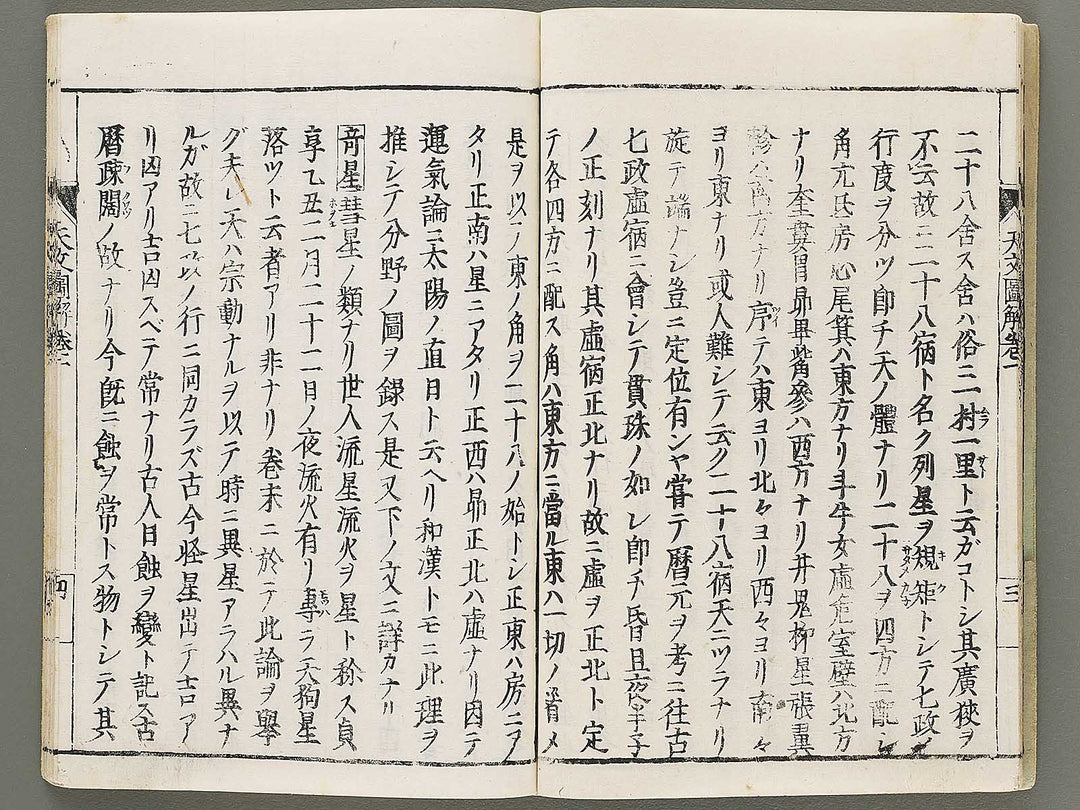 天文圖解卷二
三
二十八舍ス舍ハ俗ニ一村一里ト云ガコトシ其廣狹ヲ
不云故ニ二十八宿ト名ク列星ヲ規矩トシテ七政ノ
行度ヲ分ツ即チ天ノ體ナリ二十八ヲ四方ニ配シ
角亢氐房心尾箕ハ東方ナリ斗牛女虛危室壁ハ北方
ナリ奎婁胃昴畢觜參ハ西方ナリ井鬼柳星張翼
軫ハ南方ナリ序テハ東ヨリ北々ヨリ西々ヨリ南々
ヨリ東ナリ或人難シテ云ク二十八宿天ニツラナリ
旋テ端ナシ豈ニ定位有ンヤ嘗テ曆元ヲ考ニ往古
七政虛宿ニ會シテ貫珠ノ如レ即チ昏旦夜半子
ノ正刻ナリ其虛宿正北ナリ故ニ虛ヲ正北ト定
テ各四方ニ配ス角ハ東方ニ當ル東ハ一切ノ首メ
是ヲ以ノ東ノ角ヲ二十八ノ始トシ正東ハ房ニア
タリ正南ハ星ニアタリ正西ハ昴正北ハ虛ナリ因テ
運氣論ニ太陽ノ直日ト云ヘリ和漢トモニ此理ヲ
推シテ分野ノ圖ヲ録ス是又下ノ文ニ詳カナリ
奇星彗星ノ類ナリ世人流星流火ヲ星ト称ス貞
享乙丑二月二十二日ノ夜流火有リ專ラ天狗星
落ツト云者アリ非ナリ卷末ニ於テ此論ヲ擧
グ夫レ天ハ宗動ナルヲ以テ時ニ異星アラハル異ナ
ルガ故ニ七政ノ行ニ同カラズ古今怪星出テ吉ア
リ凶アリ吉凶スベテ常ナリ古人日蝕ヲ變ト記ス古
曆疎闊ノ故ナリ今旣ニ蝕ヲ常トス物トシテ其
天文圖解卷二
四